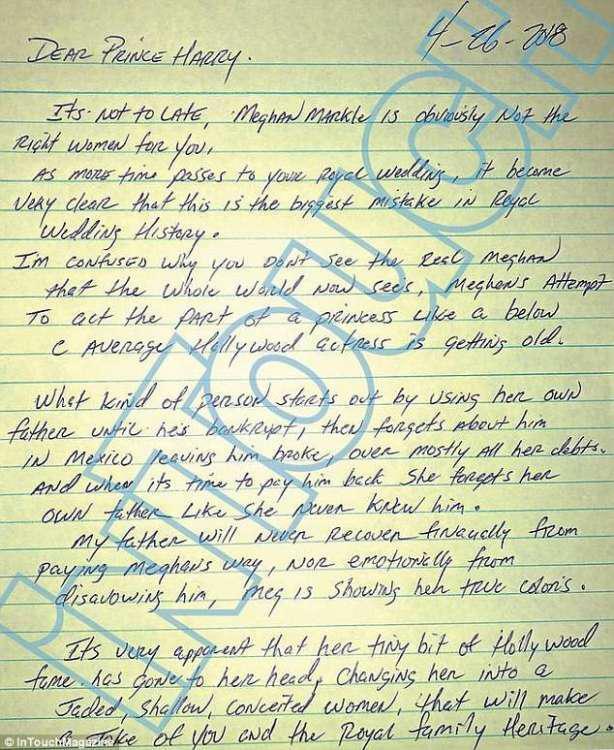 4-26-2018
DEAR PRINCE HARRY.
Its. Not to LATE, Meghan MARKle is obviously Not the
Right Women for you,
As more time passes to your Royal Wedding, it became
very clear that this is the biggest mistake in Royal
Wedding History.
I'm confused why you DON'T See the Real Meghan
that the whole World Now sees, Meghan's Attempt
To act the PART of a princess Like a below
C AVERAGE Hollywood actress is getting old.
What kind of person starts out by using her own
father until he's bankrupt, then forgets about him
IN Mexico leaving him broke, over mostly all her debts.
AND when its time to pay him back She forgets her
OWN father Like She Never Knew him.
My father will Never Recover finacially from
paying Meghan's way, NOR emotionally from
disavowing him, Meg is showing her true colors.
It's very apparent that her tiny bit of Hollywood
fame. has gone to her head, Changing her into a
Jaded, Shallow, Conceited women, that will make
A Joke of you and the Royal family Heritage.
INTOUCH
© InTouchMagazine